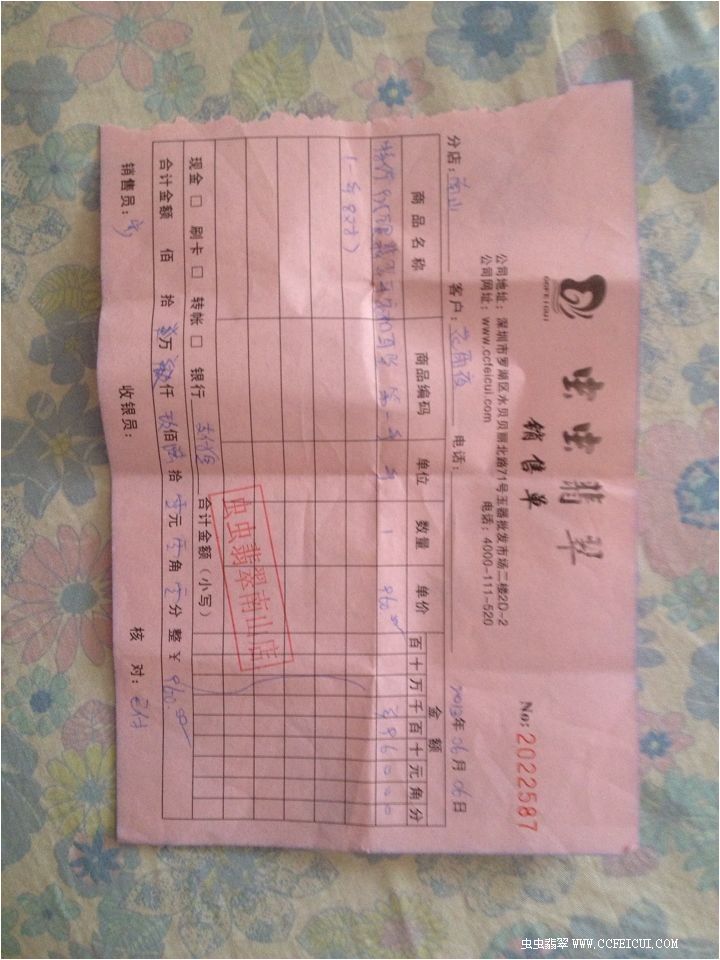 CCFEICUI
虫虫翡翠
销售单
No: 2022587
公司地址：深圳市罗湖区水贝贝丽北路71号玉器批发市场二楼2D-2
公司网址：www.ccfeicui.com 电话：4000-111-520
分店：南山 客户： 电话： 2013年06月06日
商品名称 商品编码 单位 数量 单价 金额
百十万千百十元角分
1 960.00 96000
现金 □ 刷卡 □ 转帐 □ 银行 支付宝 合计金额（小写）
合计金额 佰 拾 万 仟 玖佰陆拾零元零角零分 整 ￥ 960.00
销售员： 收银员： 核对：已付
虫虫翡翠南山店
虫虫翡翠 WWW.CCFEICUI.COM